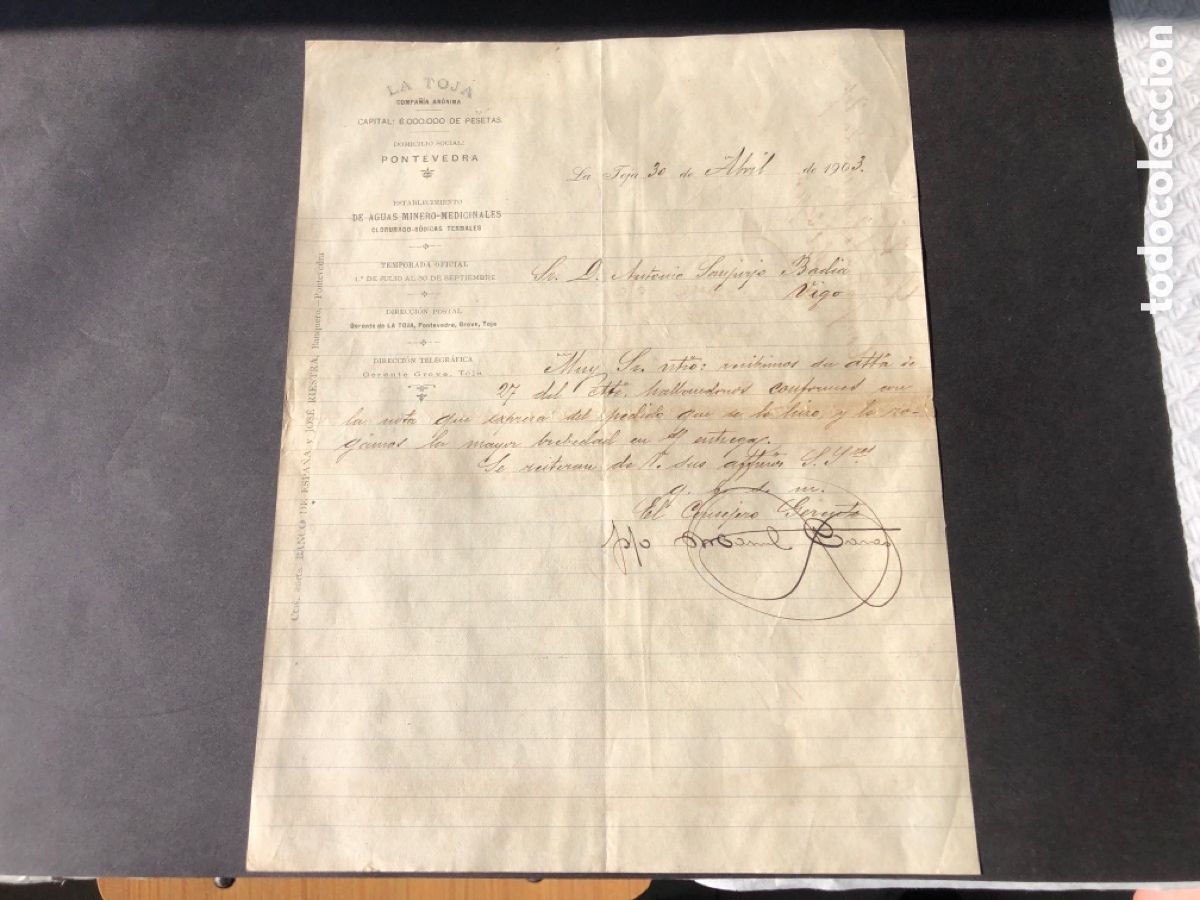 LA TOJA
COMPAÑÍA ANÓNIMA
CAPITAL: 6.000.000 DE PESETAS.
DOMICILIO SOCIAL:
PONTEVEDRA
ESTABLECIMIENTO
DE AGUAS MINERO-MEDICINALES
CLORURADO-SÓDICAS TERMALES
TEMPORADA OFICIAL
1.º DE JULIO AL 30 DE SEPTIEMBRE
DIRECCIÓN POSTAL
Gerente de LA TOJA, Pontevedra, Grove, Toja
DIRECCIÓN TELEGRÁFICA
Gerente Grove, Toja
BANCO DE ESPAÑA y JOSÉ RIESTRA, Banquero,—Pontevedra
La Toja 30 de Abril de 1903.
Sr. D. Antonio Badia
Vigo
Muy Sr. ntro: recibimos su atta de
27 del conformes con
la nota que expresa del pedido que se le hizo, y le ro-
gamos la mayor brebedad en entrega.
Se reiteran de V. sus S. S.res
q. b. s. m.
El Consejero Gerente
p/o Manuel
todocoleccion